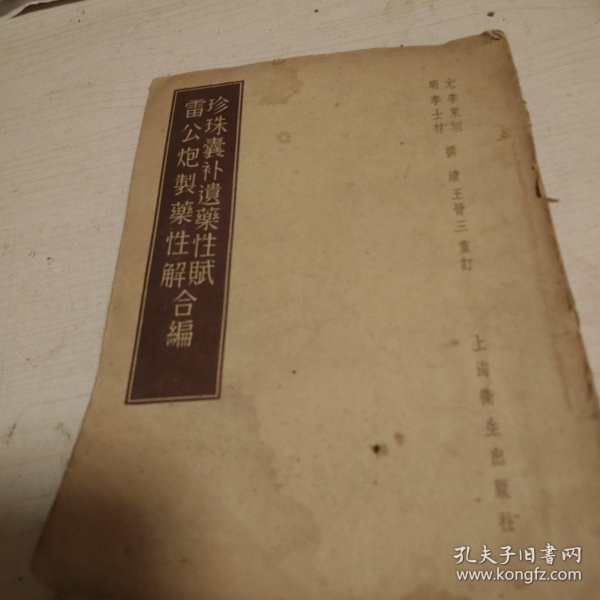 珍珠囊补遺藥性賦
雷公炮製藥性解合編
元李東垣
明李士材
撰 清王晉三重訂
上海衛生出版社
孔夫子旧書网
www.kongfz.com